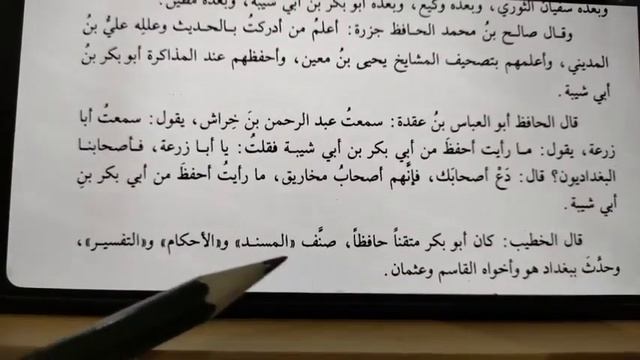 وبعده سفيان الثوري، وبعده وكيع، وبعده أبو بكر بن أبي شيبة، وبعده
وقال صالح بنُ محمد الحافظ جزرة: أعلمُ من أدركتُ بالحديث وعلله عليُّ بنُ
المديني، وأعلمهم بتصحيف المشايخ يحيى بنُ معين، وأحفظهم عند المذاكرة أبو بكر بنُ
أبي شيبة.
قال الحافظ أبو العباس بنُ عقدة: سمعتُ عبد الرحمن بنَ خِراش، يقول: سمعتُ أبا
زرعة، يقول: ما رأيت أحفظَ من أبي بكر بن أبي شيبة فقلتُ: يا أبا زرعة، فأصحابنا
البغداديون؟ قال: دَعْ أصحابَك، فإنَّهم أصحابُ مخاريق، ما رأيتُ أحفظَ من أبي بكر بنِ
أبي شيبة.
قال الخطيب: كان أبو بكر متقناً حافظاً، صنَّف «المسند» و«الأحكام» و«التفسير»،
وحدَّثَ ببغداد هو وأخواه القاسم وعثمان.